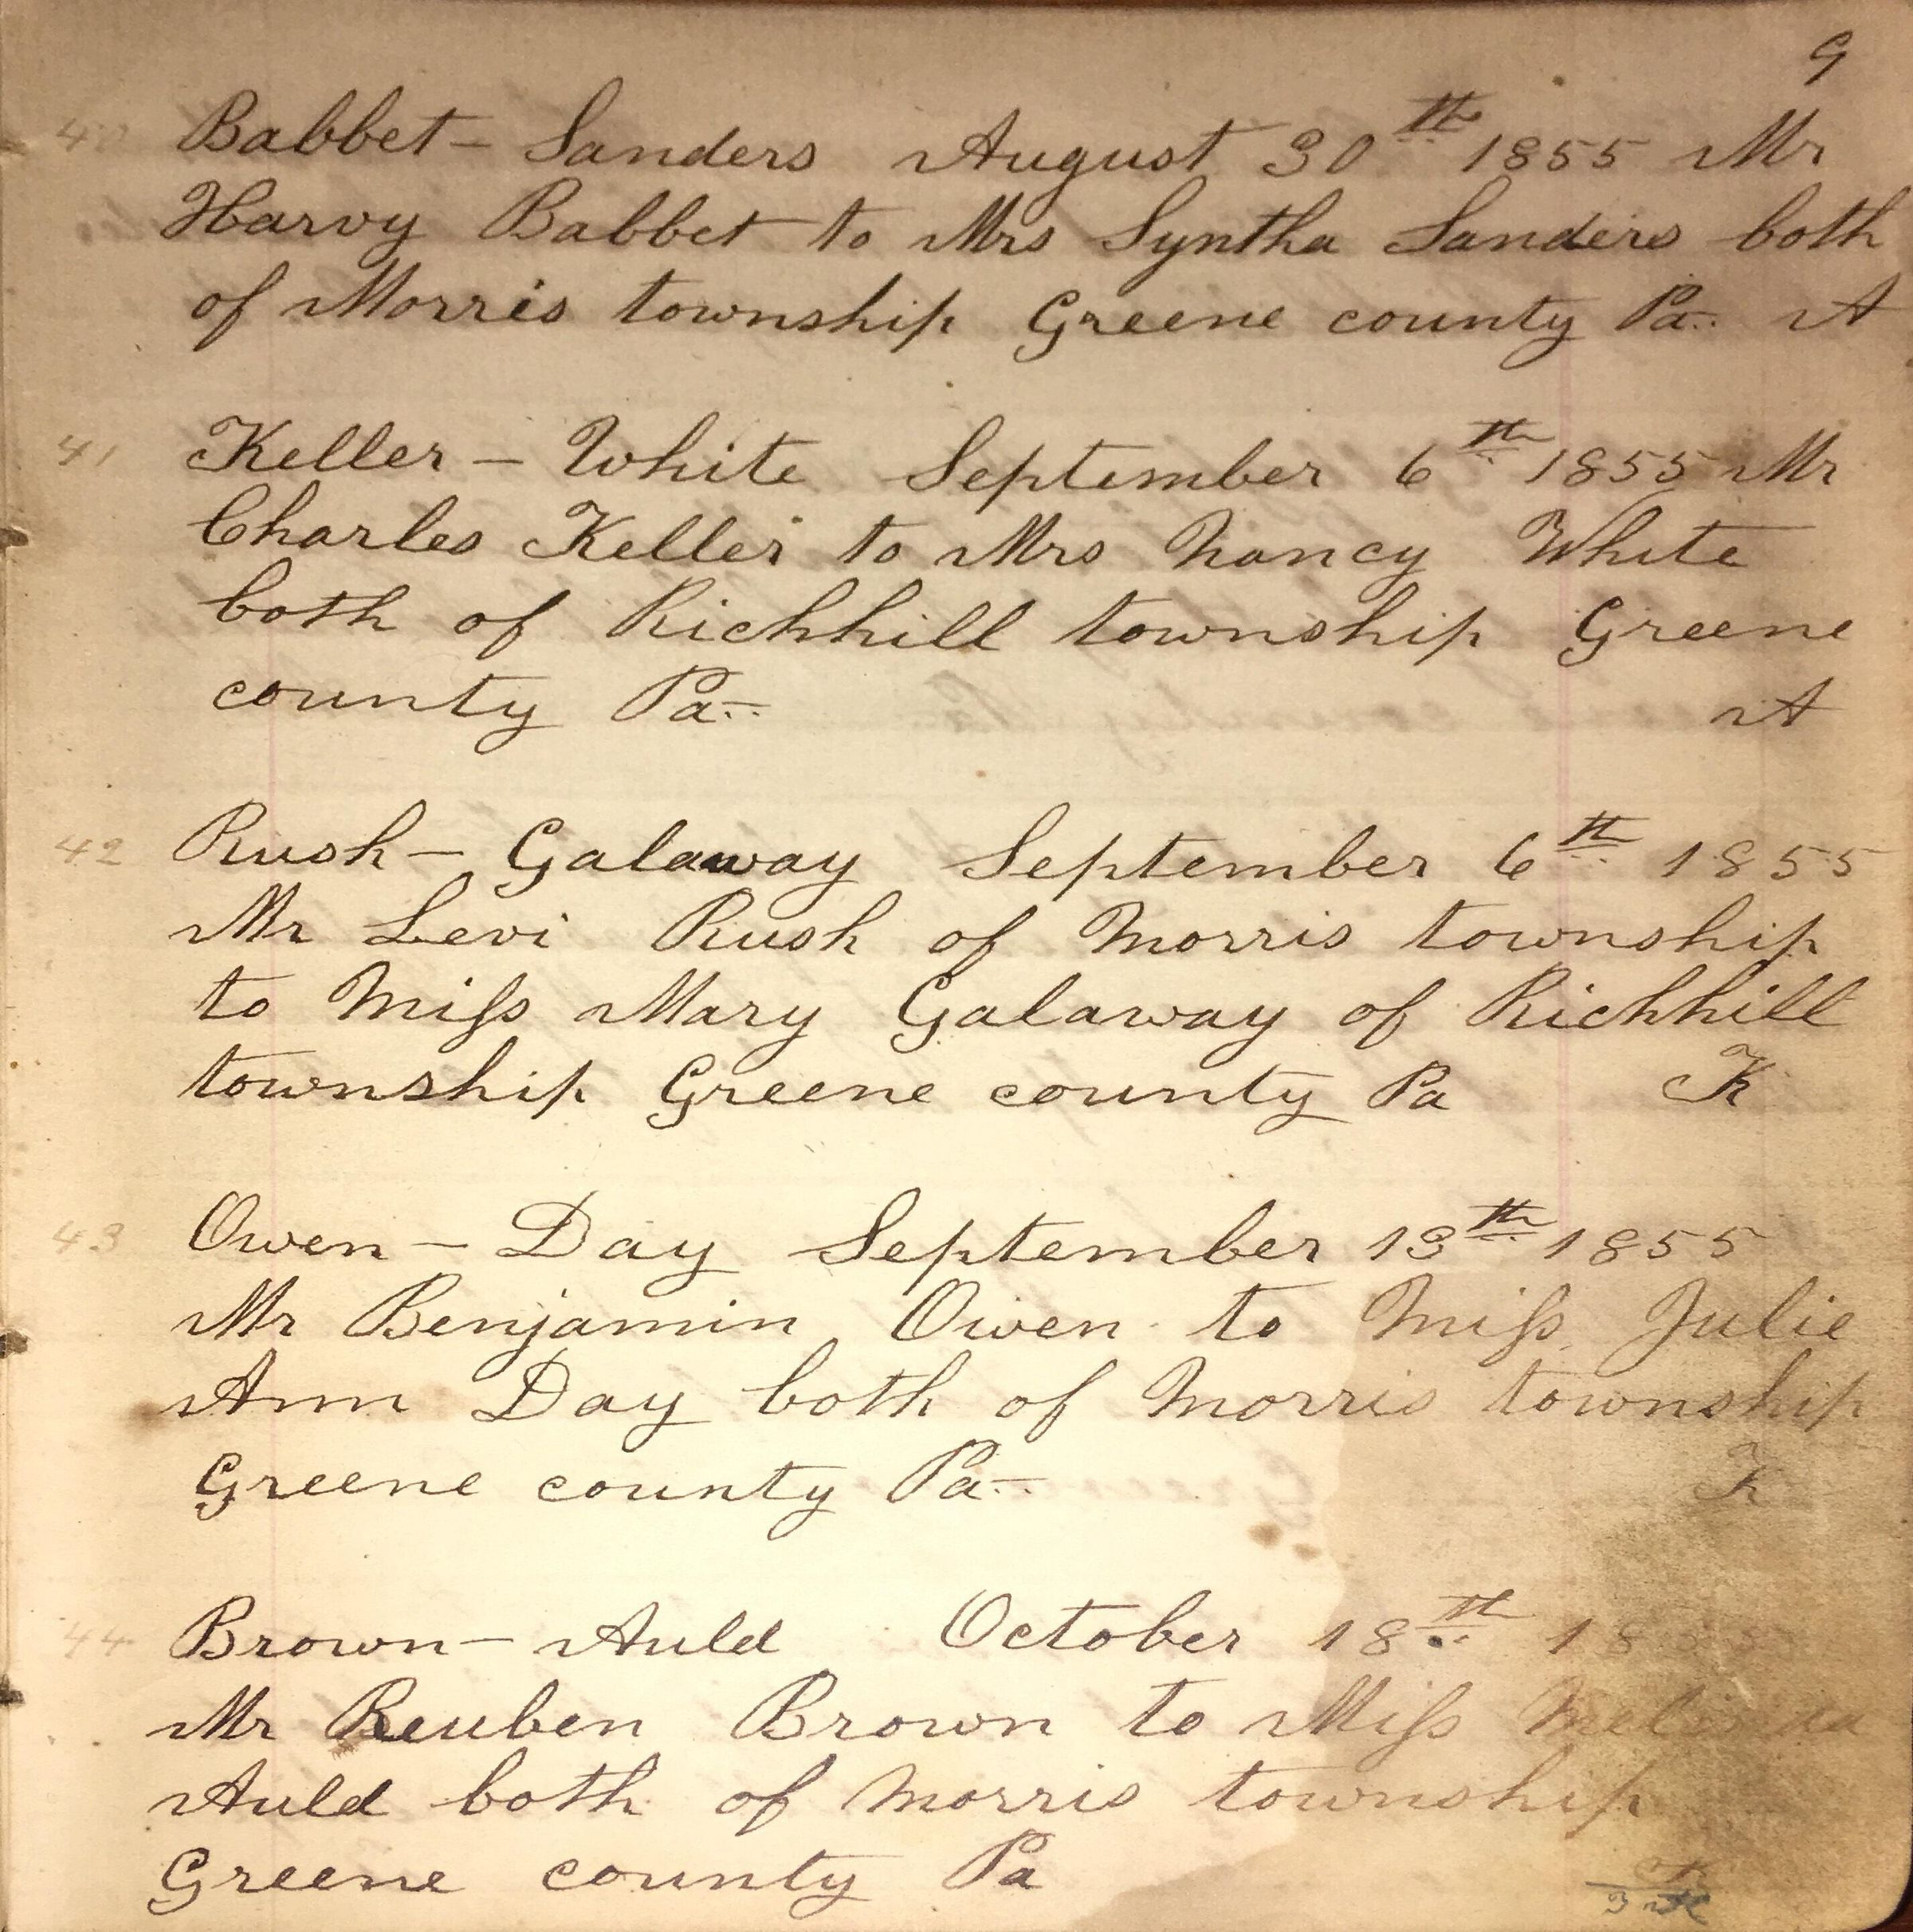 9
40 Babbet - Sanders August 30th 1855 Mr
Harvy Babbet to Mrs Syntha Sanders both
of Morris township Greene county Pa A
41 Keller - White September 6th 1855 Mr
Charles Keller to Mrs Nancy White
both of Richhill township Greene
county Pa A
42 Rush - Galaway September 6th 1855
Mr Levi Rush of Morris township
to Miss Mary Galaway of Richhill
township Greene county Pa K
43 Owen - Day September 13th 1855
Mr Benjamin Owen to Miss Julie
Ann Day both of Morris township
Greene county Pa K
44 Brown - Auld October 18th 1855
Mr Reuben Brown to Miss Melinda
Auld both of Morris township
Greene county Pa K